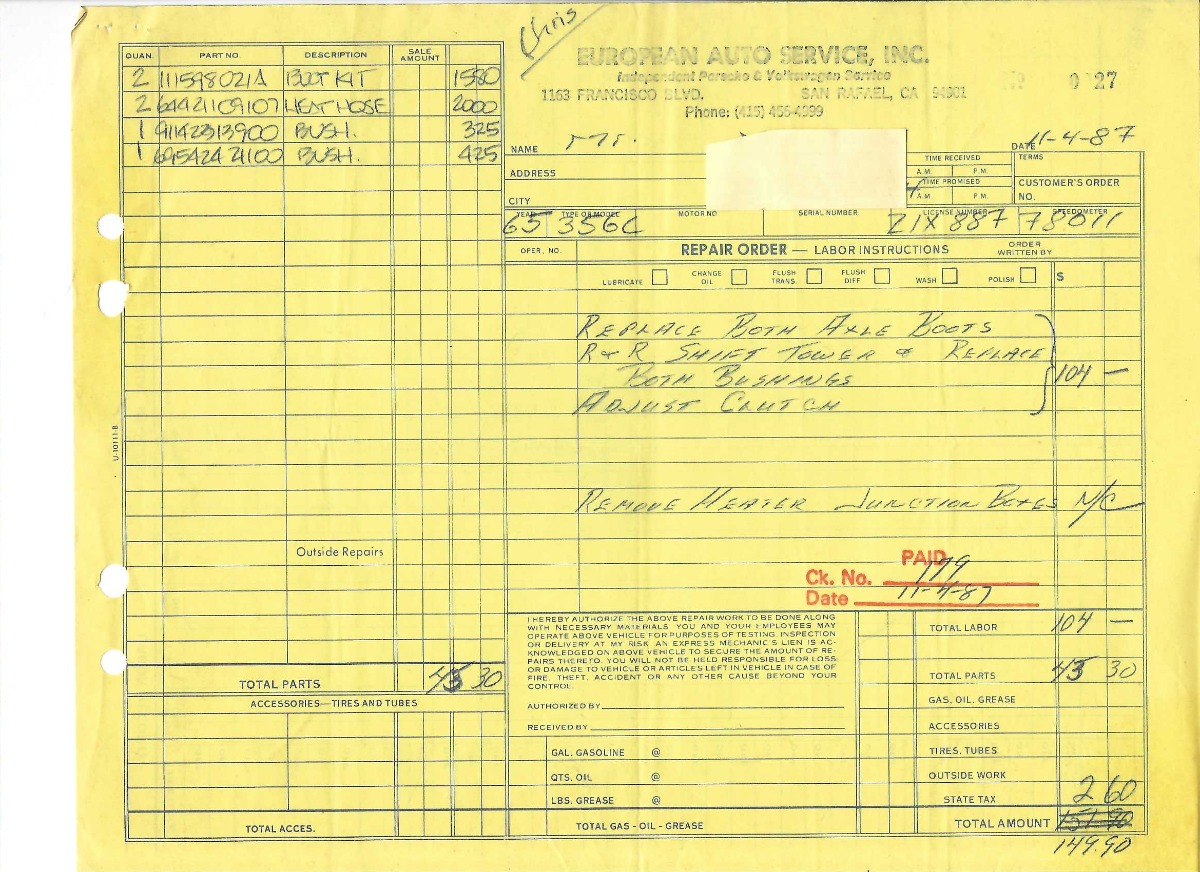 Chris
EUROPEAN AUTO SERVICE, INC.
Independent Porsche & Volkswagen Service
1163 FRANCISCO BLVD. SAN RAFAEL, CA 94901
Phone: (415) 456-4999
0 27
QUAN. PART NO. DESCRIPTION SALE AMOUNT
2 111598021A BOOT KIT 1580
2 64421109107 HEAT HOSE 2000
1 91142313900 BUSH. 325
1 69542421100 BUSH. 425
Outside Repairs
TOTAL PARTS 43 30
ACCESSORIES—TIRES AND TUBES
TOTAL ACCES.
U-10111-B
NAME Mr.
DATE 11-4-87
ADDRESS
CITY
TIME RECEIVED
A.M. P.M.
TIME PROMISED
A.M. P.M.
TERMS
CUSTOMER'S ORDER NO.
YEAR TYPE OR MODEL MOTOR NO SERIAL NUMBER LICENSE NUMBER SPEEDOMETER
65 356C ZIX 887 78011
OPER. NO. REPAIR ORDER — LABOR INSTRUCTIONS ORDER WRITTEN BY
LUBRICATE CHANGE OIL FLUSH TRANS. FLUSH DIFF. WASH POLISH $
REPLACE BOTH AXLE BOOTS
R & R SHIFT TOWER & REPLACE
BOTH BUSHINGS 104 —
ADJUST CLUTCH
REMOVE HEATER JUNCTION BOXES N/C
PAID
Ck. No. 179
Date 11-4-87
I HEREBY AUTHORIZE THE ABOVE REPAIR WORK TO BE DONE ALONG
WITH NECESSARY MATERIALS. YOU AND YOUR EMPLOYEES MAY
OPERATE ABOVE VEHICLE FOR PURPOSES OF TESTING, INSPECTION
OR DELIVERY AT MY RISK. AN EXPRESS MECHANIC'S LIEN IS AC-
KNOWLEDGED ON ABOVE VEHICLE TO SECURE THE AMOUNT OF RE-
PAIRS THERETO. YOU WILL NOT BE HELD RESPONSIBLE FOR LOSS
OR DAMAGE TO VEHICLE OR ARTICLES LEFT IN VEHICLE IN CASE OF
FIRE, THEFT, ACCIDENT OR ANY OTHER CAUSE BEYOND YOUR
CONTROL.
AUTHORIZED BY
RECEIVED BY
GAL. GASOLINE @
QTS. OIL @
LBS. GREASE @
TOTAL GAS - OIL - GREASE
TOTAL LABOR 104 —
TOTAL PARTS 43 30
GAS, OIL, GREASE
ACCESSORIES
TIRES, TUBES
OUTSIDE WORK
STATE TAX 2 60
TOTAL AMOUNT 151.90
149.90